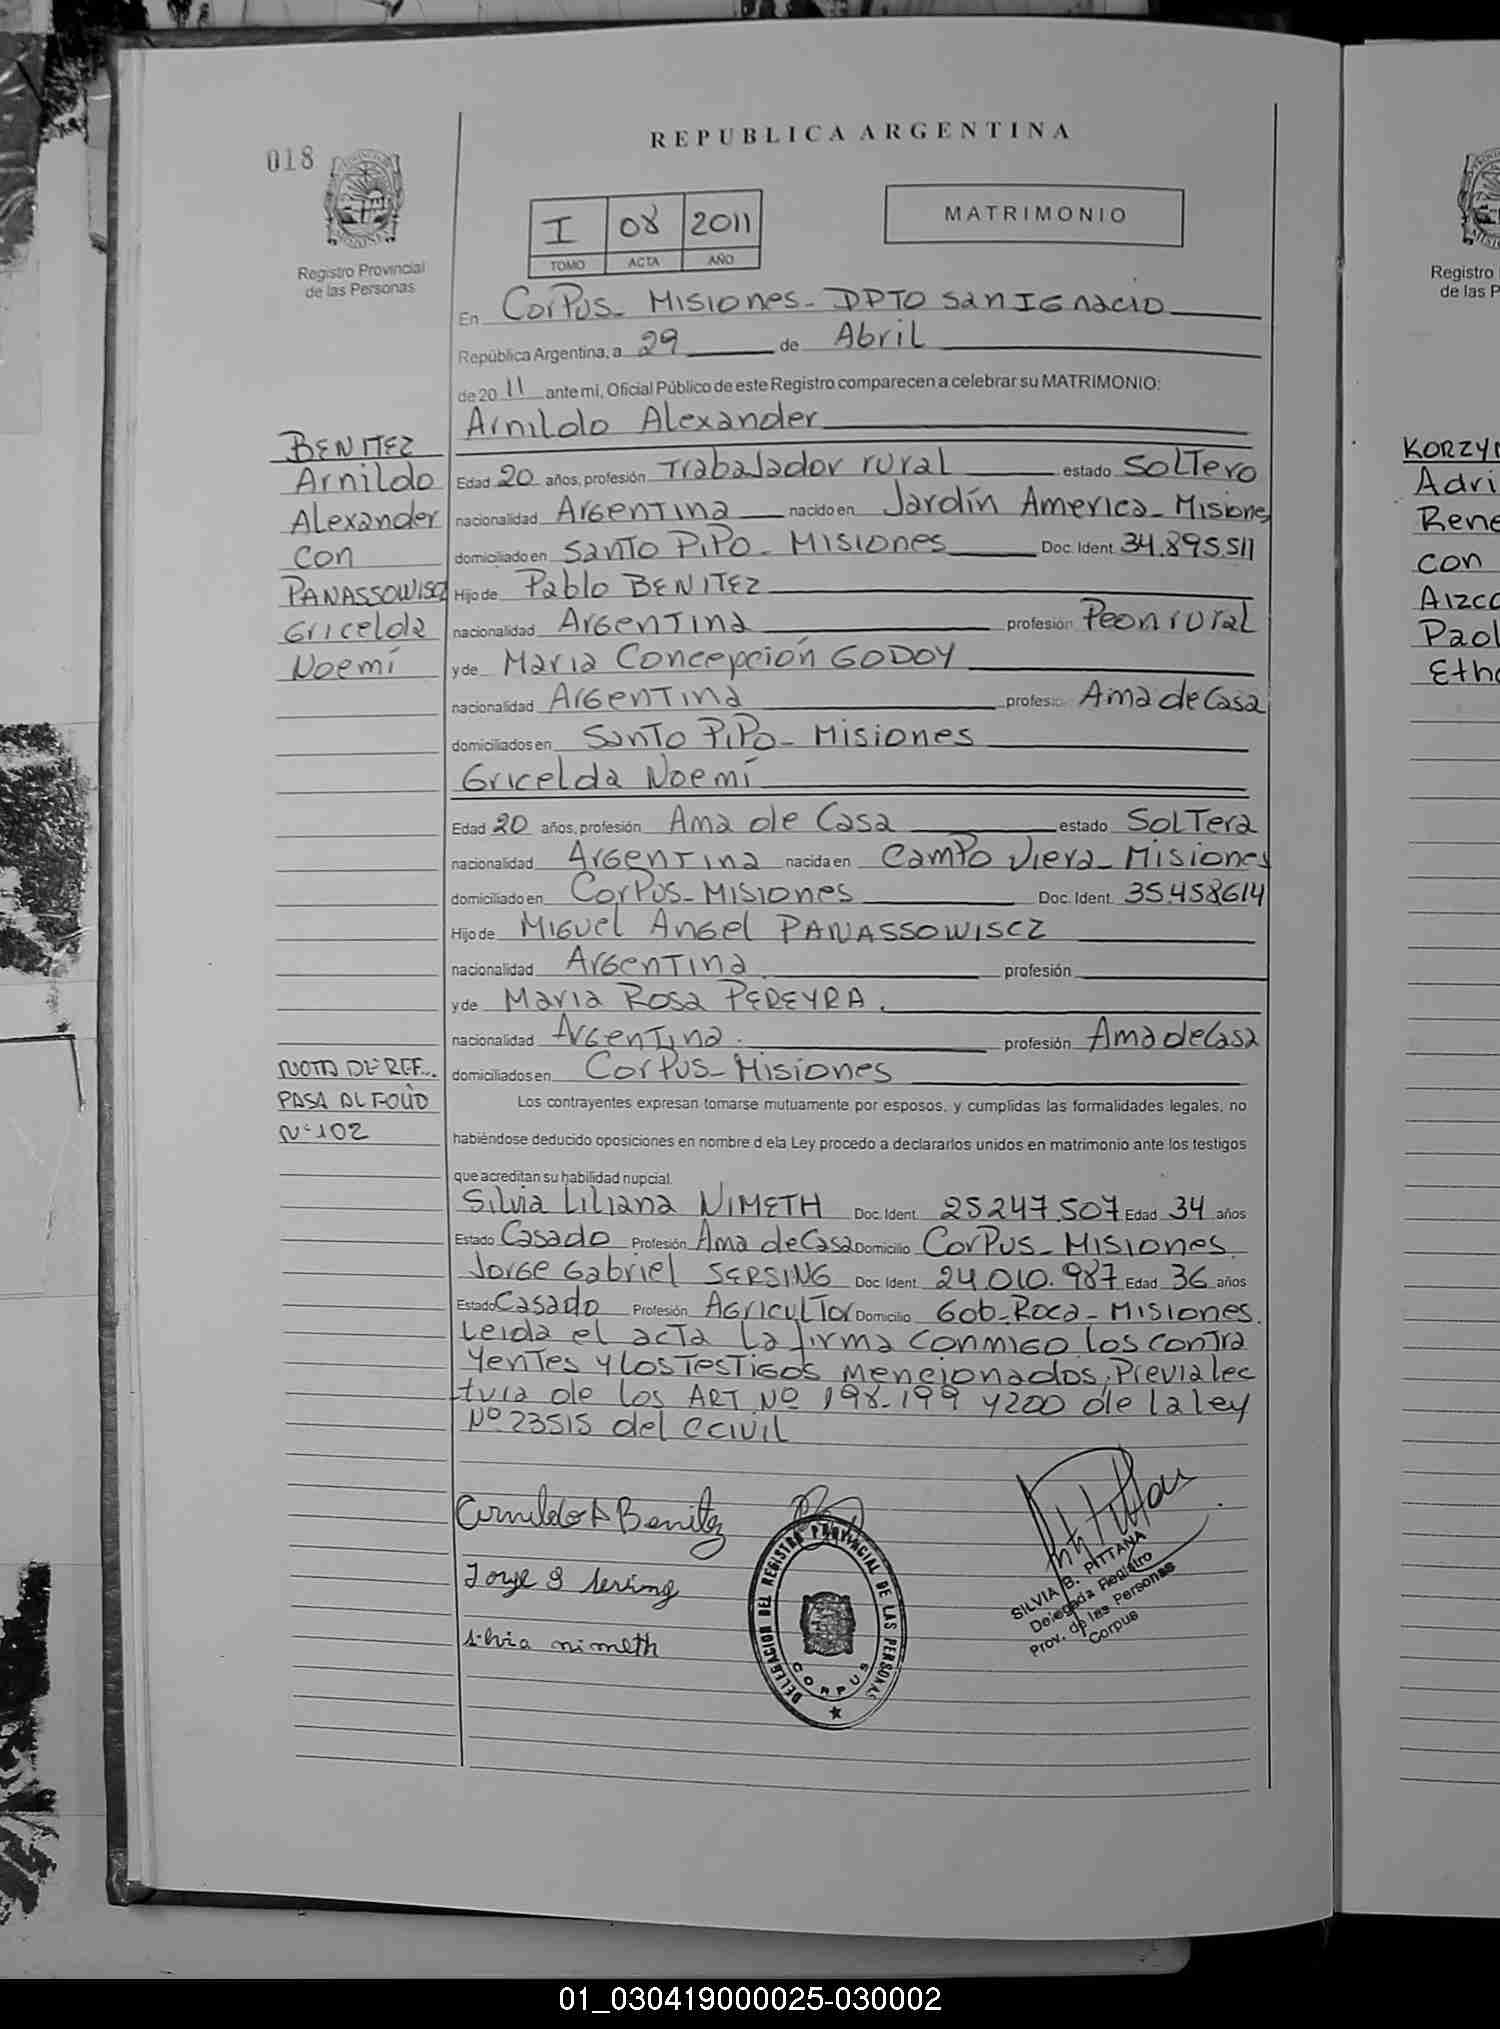 REPUBLICA ARGENTINA
018
I 08 2011
TOMO ACTA AÑO
MATRIMONIO
Registro Provincial
de las Personas
En Corpus - Misiones - DPTO San Ignacio
República Argentina, a 29 de Abril
de 20 11 ante mi, Oficial Público de este Registro comparecen a celebrar su MATRIMONIO:
Arnildo Alexander
Edad 20 años, profesión Trabajador rural estado Soltero
nacionalidad Argentina nacido en Jardín America - Misiones
domiciliado en Santo Pipo - Misiones Doc. Ident. 34.895.511
Hijo de Pablo BENITEZ
nacionalidad Argentina profesión Peon rural
y de Maria Concepción GODOY
nacionalidad Argentina profesió Ama de Casa
domiciliados en Santo Pipo - Misiones
Gricelda Noemí
Edad 20 años, profesión Ama de Casa estado Soltera
nacionalidad Argentina nacida en Campo Viera - Misiones
domiciliado en Corpus - Misiones Doc. Ident. 35.458614
Hijo de Miguel Angel PANASSOWISCZ
nacionalidad Argentina profesión
y de Maria Rosa PEREYRA.
nacionalidad Argentina. profesión Ama de Casa
domiciliados en Corpus - Misiones
Los contrayentes expresan tomarse mutuamente por esposos, y cumplidas las formalidades legales, no
habiéndose deducido oposiciones en nombre d ela Ley procedo a declararlos unidos en matrimonio ante los testigos
que acreditan su habilidad nupcial.
Silvia Liliana NIMETH Doc. Ident. 25247.507 Edad 34 años
Estado Casado Profesión Ama de Casa Domicilio Corpus - Misiones.
Jorge Gabriel SERSING Doc. Ident. 24010.987 Edad 36 años
Estado Casado Profesión Agricultor Domicilio Gob. Roca - Misiones.
Leida el acta la firma conmigo los contra
yentes y los testigos mencionados, Previa lec
tura de los ART Nº 198-199 y 200 de la ley
Nº 23515 del C Civil
BENITEZ
Arnildo
Alexander
con
PANASSOWISCZ
Gricelda
Noemí
NOTA DE REF...
PASA AL FOLIO
Nº 102
Arnildo A Benitez
Jorge G Sersing
silvia nimeth
DELEGACION DEL REGISTRO PROVINCIAL DE LAS PERSONAS
CORPUS
SILVIA B. PITTANA
Delegada Registro
Prov. de las Personas
Corpus
Registro
de las P
KORZY
Adri
Rene
con
Aizco
Paol
Etha
01_030419000025-030002